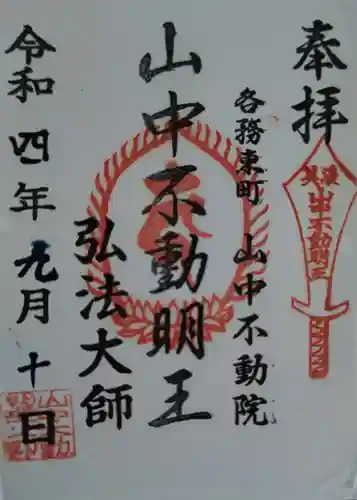 奉拝
美濃
山中不動明王
各務東町 山中不動院
山中不動明王
弘法大師
令和四年九月十日